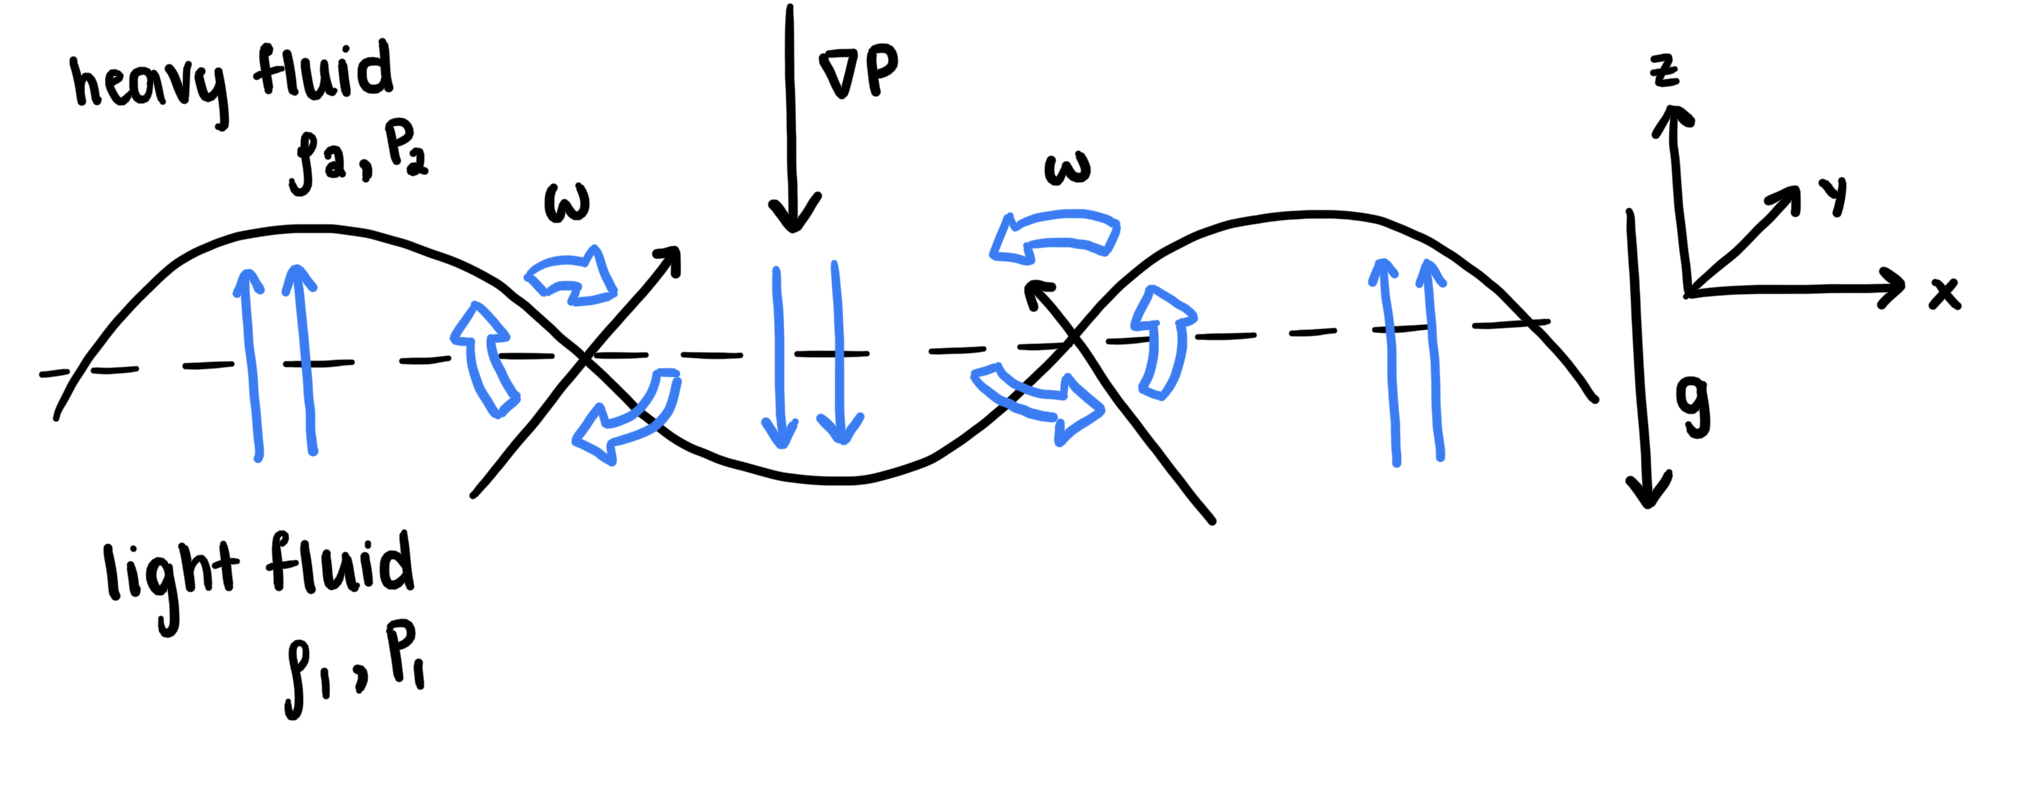 heavy fluid
ρ2, P2
∇P
ω
ω
z
y
x
g
light fluid
ρ1, P1